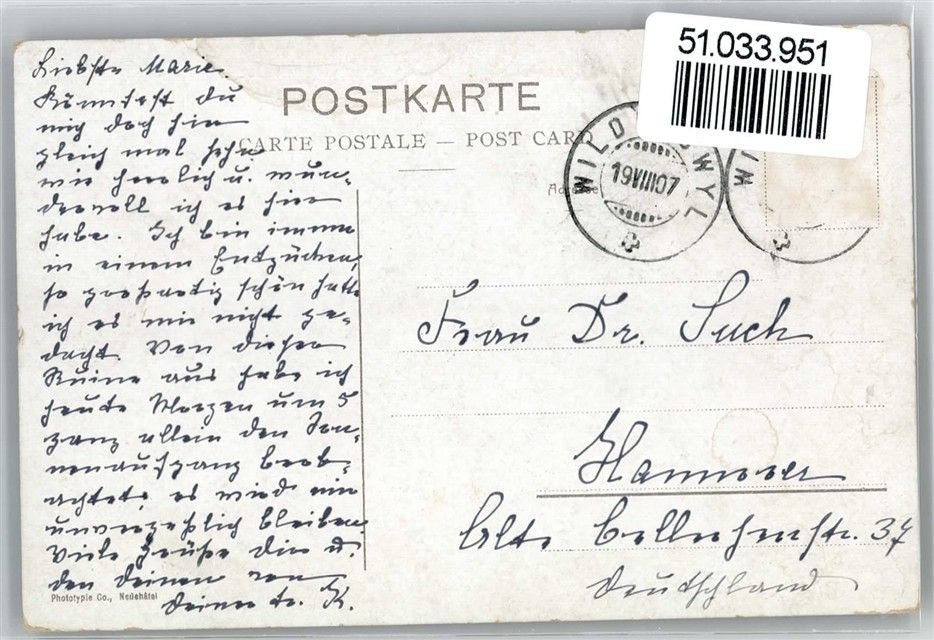 51.033.951
POSTKARTE
CARTE POSTALE — POST CARD
WILD WYL
19VIII07
WI
Liebste Marie.
Könntest du
mich doch hier
gleich mal sehn
wie herrlich u. wun-
dervoll ich es hier
habe. Ich bin immer
in einem Entzücken,
so großartig schön hatte
ich es mir nicht ge-
dacht. Von dieser
Ruine aus habe ich
heute Morgen um 5
ganz allein den Son-
nenaufgang beob-
achtet, es wird mir
unvergeßlich bleiben
Viele Grüße dir u.
den deinen von
Deiner tr. K.
Frau Dr. Such
Hannover
Alte Cellerheerstr. 37
Deutschland
Phototypie Co., Neuchâtel